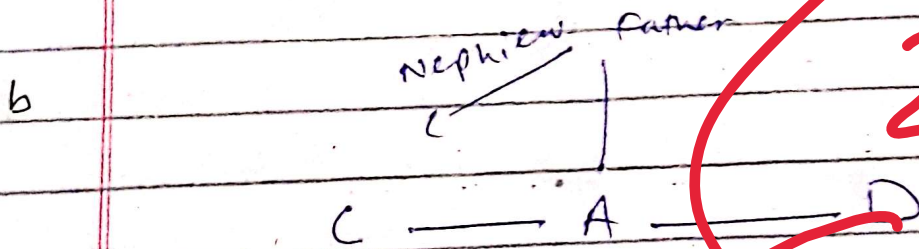 Nephiew Father
b
C
C A D